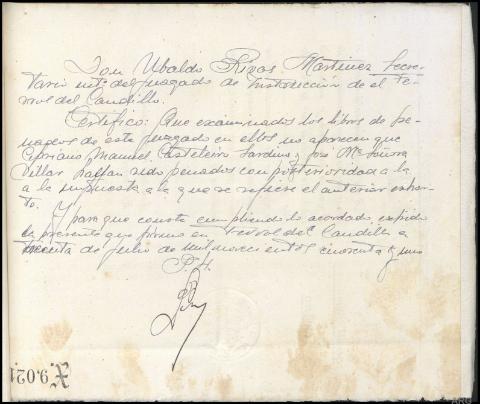 Don Ubaldo Rivas Martinez Secre-
tario int. del Juzgado de Instrucción de el Fe-
rrol del Caudillo.
Certifico: Que examinados los libros de pe-
nados de este juzgado en ellos no aparecen que
Cipriano Manuel Casteleiro Sardina y José Mª
Villar sido penados con posterioridad a la
a la impuesta a la que se refiere el anterior exhor-
to.
Y para que conste cumpliendo lo acordado, expido
la presente que firmo en Ferrol del Caudillo a
treinta de Julio de mil novecientos cincuenta y uno
P.H.
X 9.021